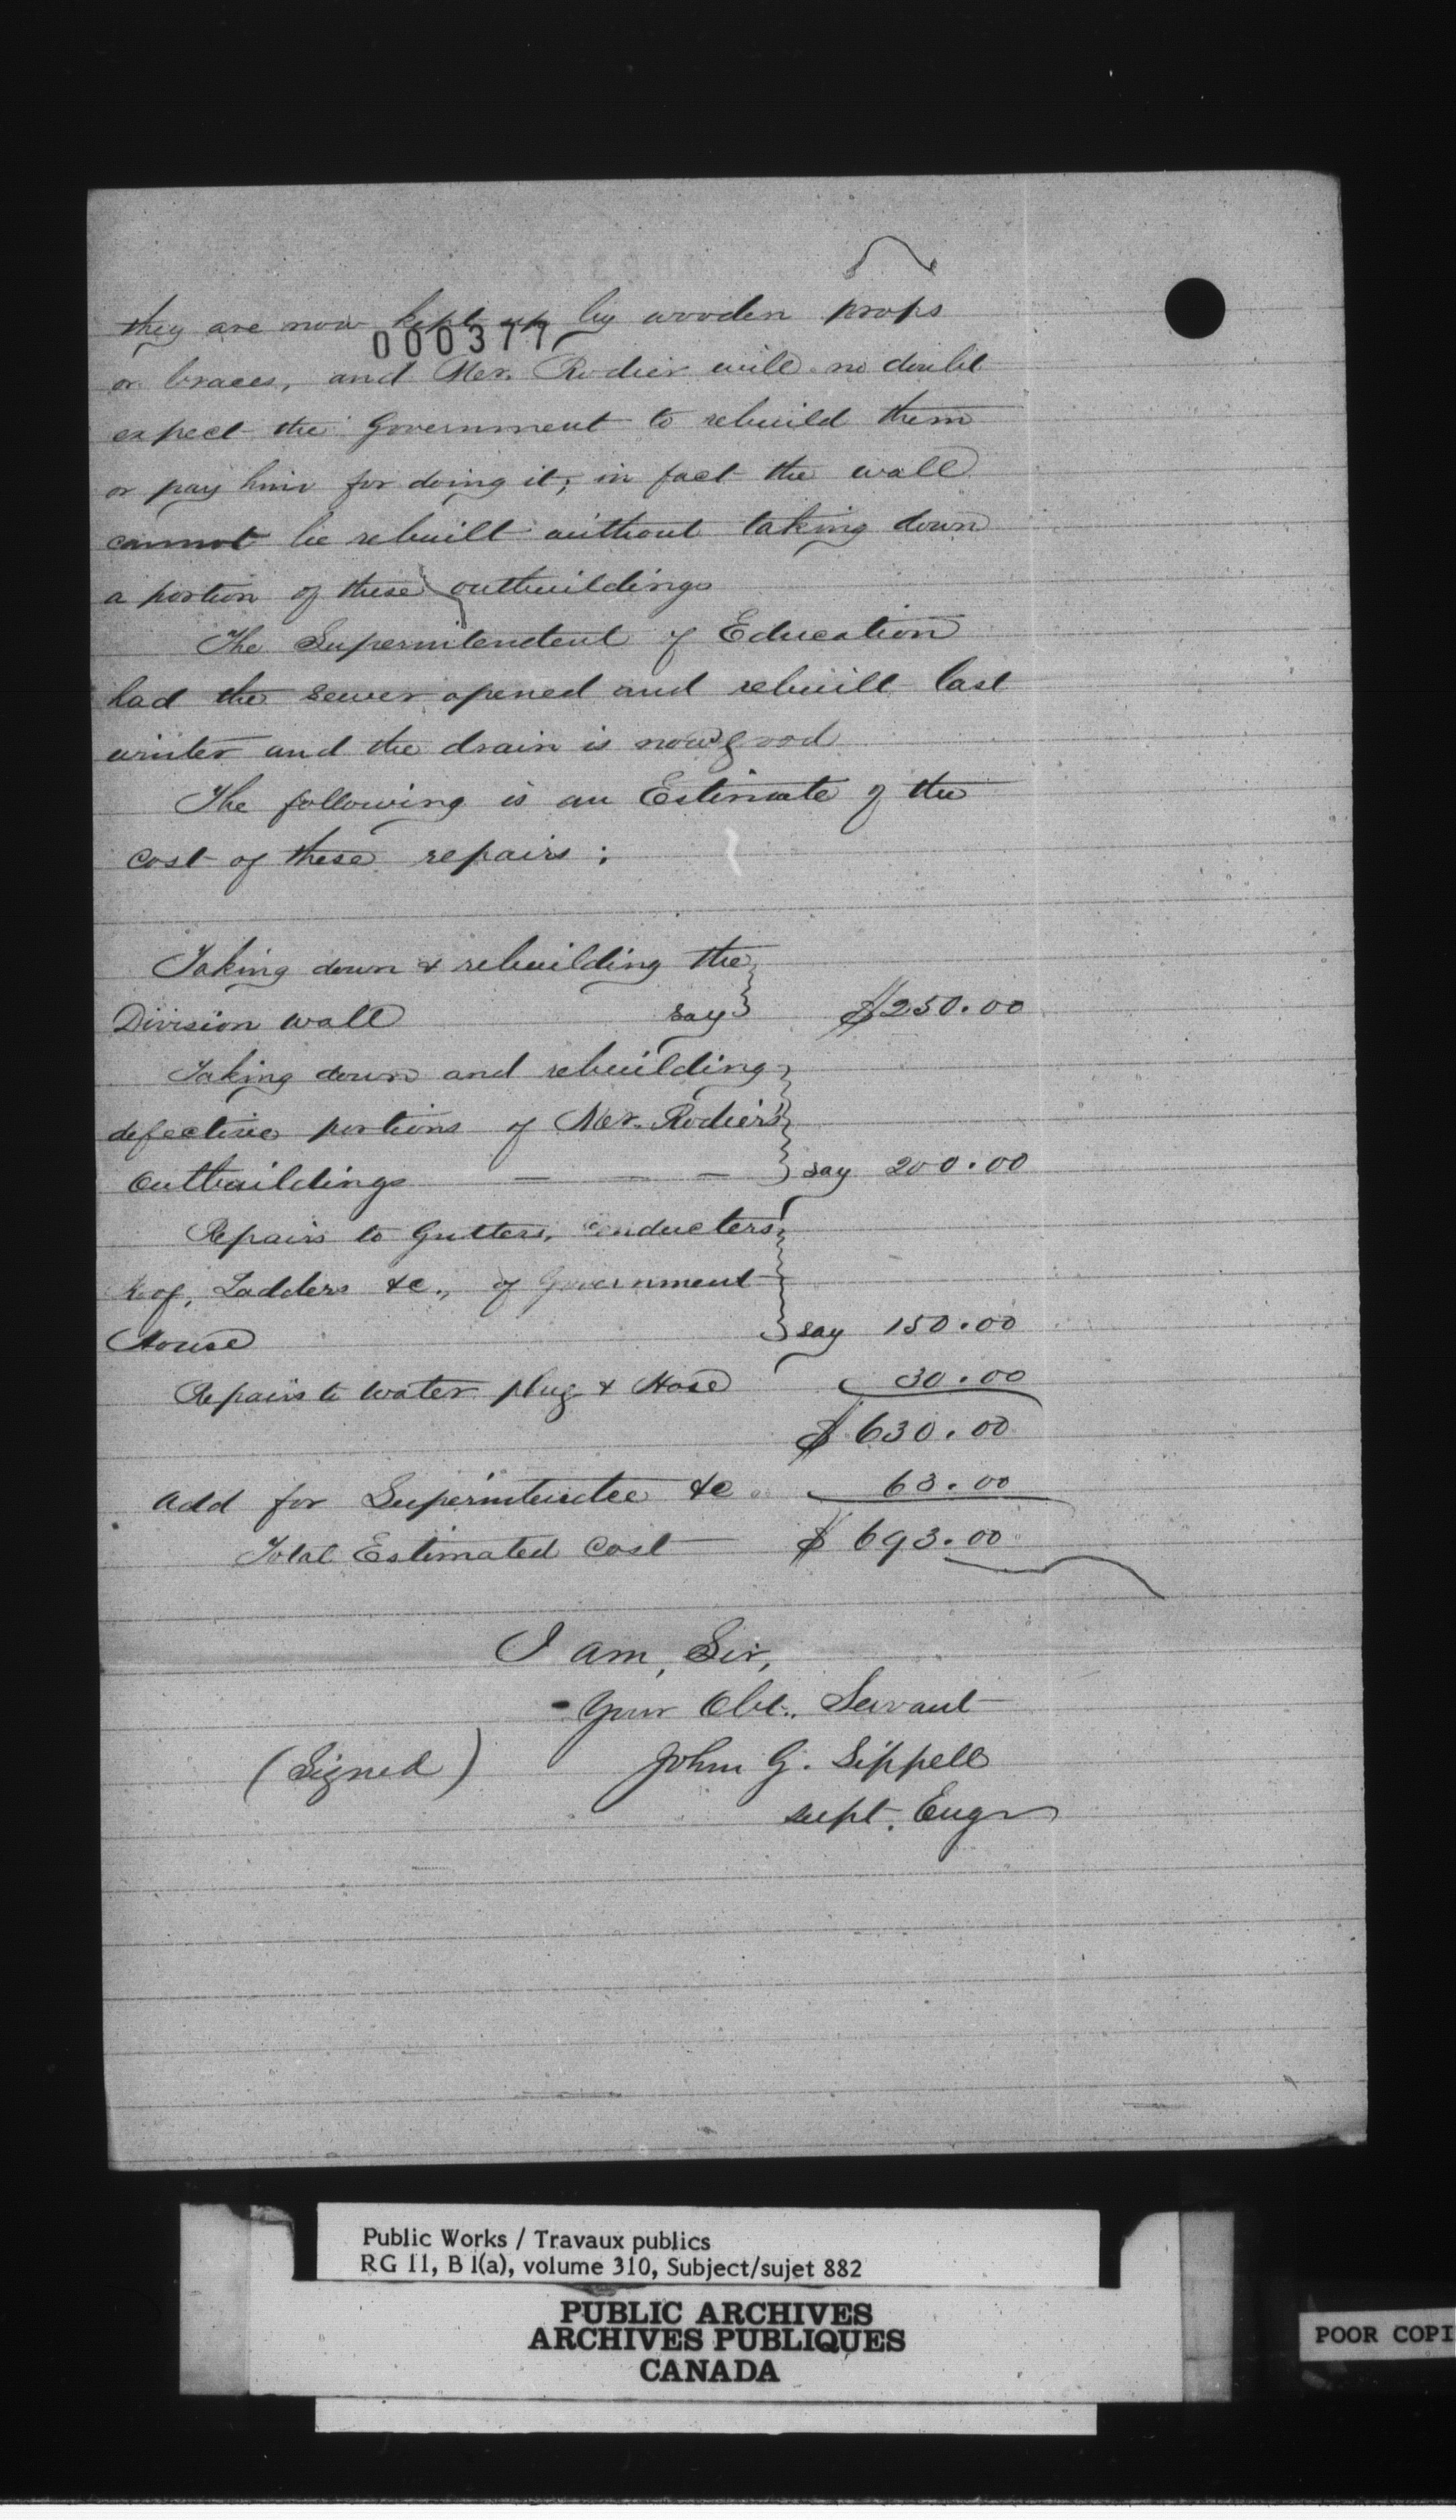 they are now kept up by wooden props
000377
or braces, and Mr. Rodier will no doubt
expect the Government to rebuild them
or pay him for doing it; in fact the wall
cannot be rebuilt without taking down
a portion of these outbuildings
The Superintendent of Education
had the sewer opened and rebuilt last
winter and the drain is now good
The following is an Estimate of the
cost of these repairs:
Taking down & rebuilding the
Division wall say $250.00
Taking down and rebuilding
defective portions of Mr. Rodier's
Outbuildings — — — say 200.00
Repairs to Gutters, Conductors
Roof, Ladders &c., of Government
House say 150.00
Repairs to water plug & Hose 30.00
$ 630.00
Add for Superintendce &c 63.00
Total Estimated Cost $ 693.00
I am, Sir,
Your Obt. Servant
(Signed) John G. Sippell
Supt. Engr
Public Works / Travaux publics
RG 11, B 1(a), volume 310, Subject/sujet 882
PUBLIC ARCHIVES
ARCHIVES PUBLIQUES
CANADA
POOR COPI